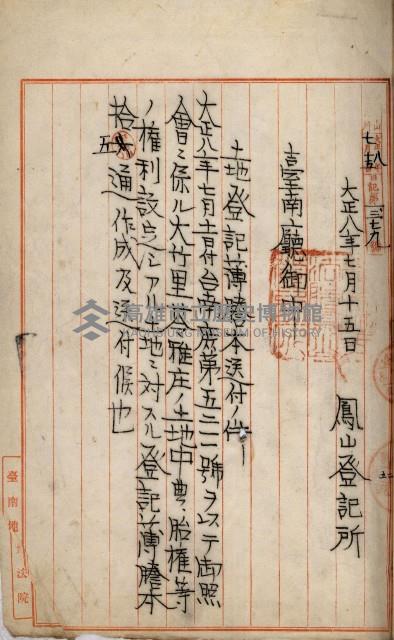 三七九
七
大正八年七月十五日
鳳山登記所
臺南廳御中
土地登記薄謄本送付ノ件
大正八年七月十一日付台南庶第五三一號ヲ以テ御照
會ニ係ル大竹里 雅庄ノ土地中典、胎權等
ノ權利設定シアル土地ニ対スル登記薄謄本
拾五通作成及送付候也
臺南地 法院
高雄市立歷史博物館
KAOHSIUNG MUSEUM OF HISTORY